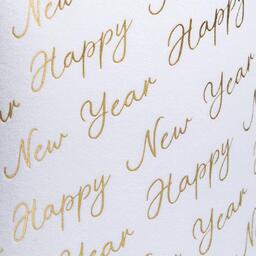 New Year
Happy
Happy New
New Year
Year Happy
Happy New
New Year
Year